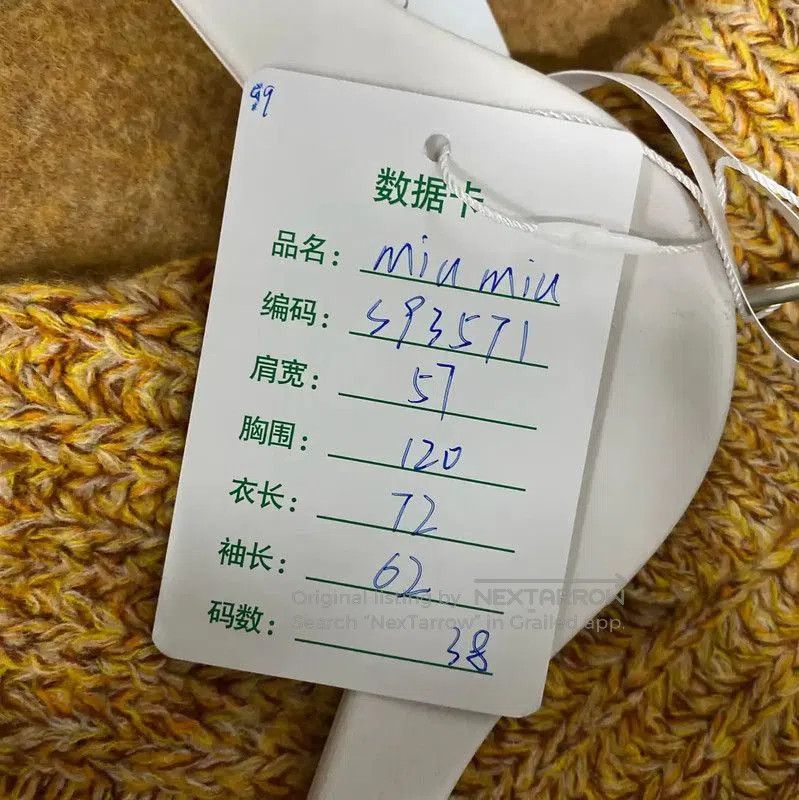 99
数据卡
品名： miu miu
编码： S93571
肩宽： 57
胸围： 120
衣长： 72
袖长： 62
码数： 38
Original listing by NEXTARROW
Search "NexTarrow" in Grailed app